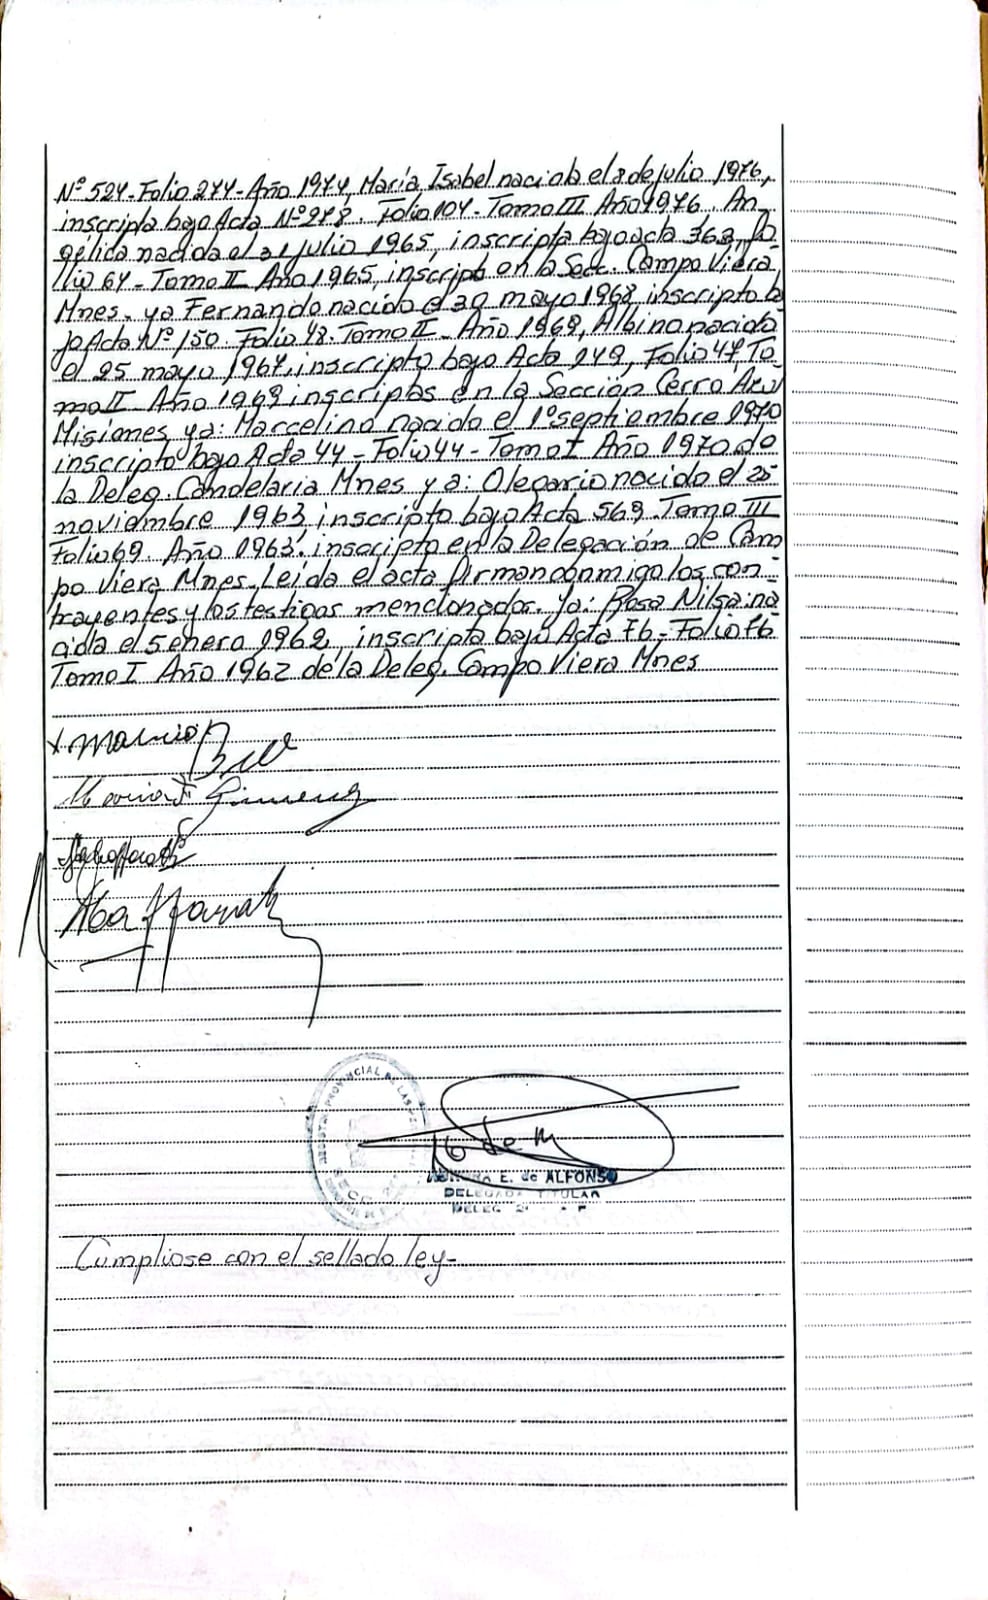 Nº 524-Folio 274-Año 1974, María Isabel nacida el 8 de julio 1976,
inscripta bajo Acta Nº 278. Folio 104-Tomo III Año 1976. An_
gélica nacida el 31 julio 1965, inscripta bajo acta 363, Fo_
lio 64-Tomo II Año 1965, inscript en la Secc. Campo Viera,
Mnes. ya Fernando nacido el 30 mayo 1968 inscripto b
jo Acta Nº 150. Folio 48. Tomo II_ Año 1969, Albino nacido
el 25 mayo 1967, inscripto bajo Acta 249, Folio 47, To_
mo II_ Año 1969 inscriptos en la Sección Cerro Azul
Misiones, ya: Marcelino nacido el 1º septiembre 1970
inscripto bajo Acta 44-Folio 44-Tomo I Año 1970 de
la Deleg. Candelaria Mnes y a: Olegario nacido el 25
noviembre 1963, inscripto bajo Acta 569. Tomo III
Folio 69. Año 1963, inscripto en la Delegación de Cam
po Viera Mnes. Leída el acta firman conmigo los con-
trayentes y los testigos mencionados. Ya: Rosa Nilsa: na
cida el 5 enero 1962, inscripta bajo Acta 76-Folio 76
Tomo I Año 1962 de la Deleg. Campo Viera Mnes
x Mauricio
Maria F Gimenez
REGISTRO PROVINCIAL DE LAS
E. de ALFONSO
DELEGADA TITULAR
DELEG
Cumpliose con el sellado ley-